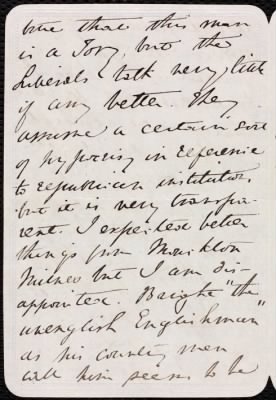 true that this man
is a Tory, but the
Liberals talk very little
if any better. They
assume a certain sort
of hypocrisy in reference
to republican institution
but it is very transpa-
rent. I expected better
things from Monckton
Milnes but I am dis-
appointed. Bright "the
unenglish Englishman"
as his country men
call him seems to be